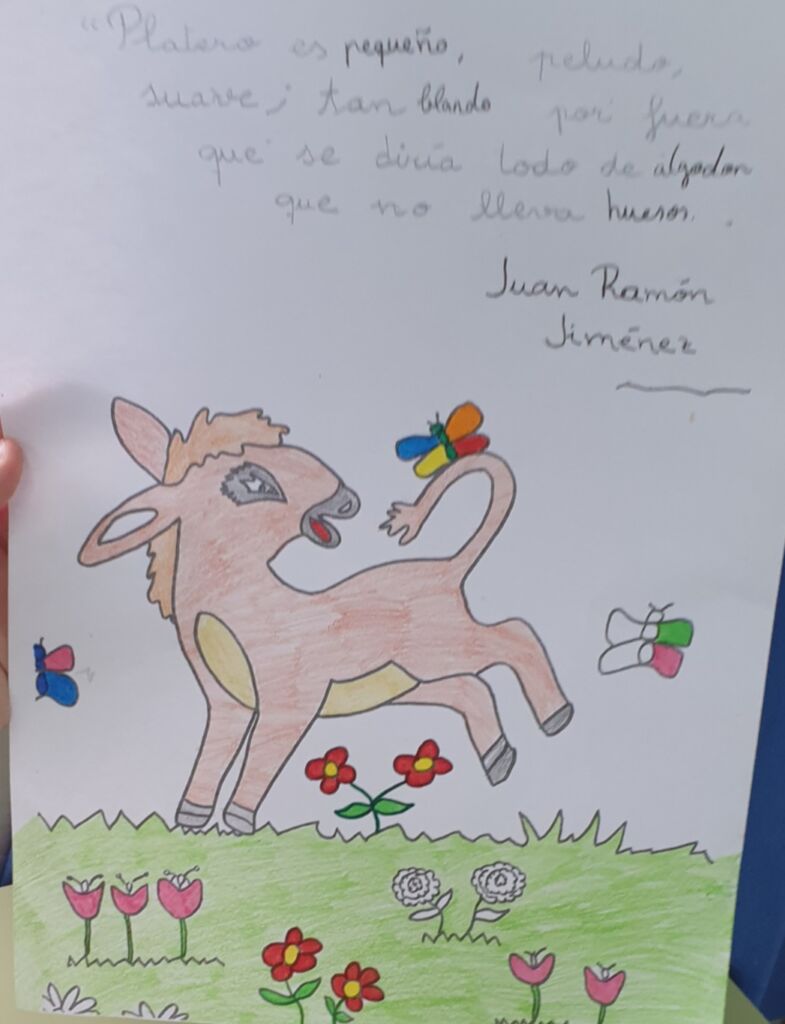 "Platero es pequeño, peludo,
suave; tan blando por fuera
que se diría todo de algodon
que no lleva huesos.
Juan Ramón
Jiménez